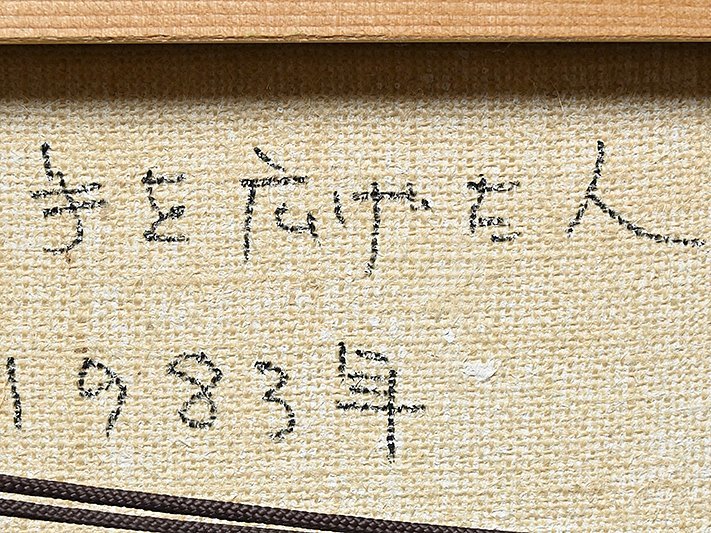 手を広げた人
1983年